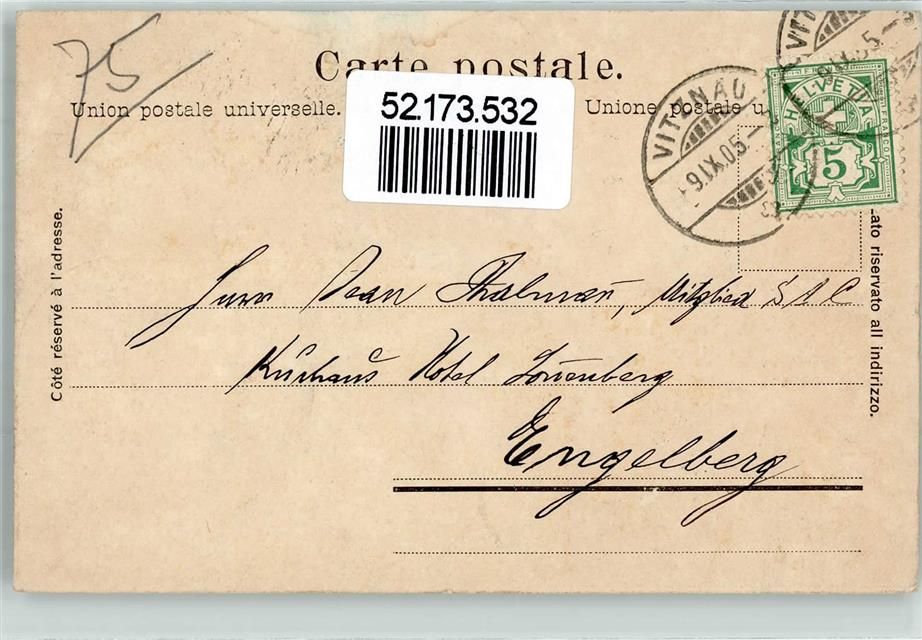 75
Carte postale.
Union postale universelle.
52.173.532
Unione postale u
VITZNAU
9.IX.05
HELVETIA
FRANCO
5
Côté réservé à l'adresse.
lato riservato all indirizzo.
Herrn Jean Thalmann, Mitglied S A C
Kurhaus Hotel
Engelberg